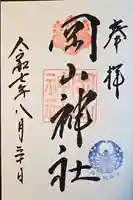 奉拝
岡山神社
令和七年八月三十日